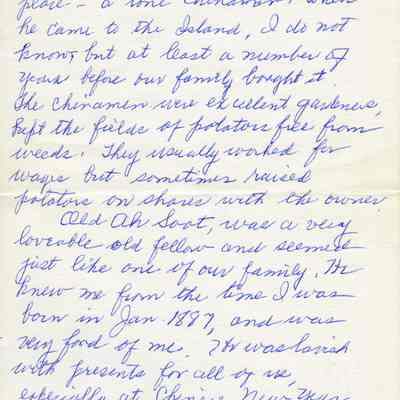 place - a lone Chinaman. When
he came to the Island, I do not
know, but at least a number of
years before our family bought it.
The Chinamen were excellent gardeners,
kept the fields of potatoes free from
weeds. They usually worked for
wages but sometimes raised
potatoes on shares with the owner.
Old Ah Soot, was a very
loveable old fellow and seemed
just like one of our family. He
knew me from the time I was
born in Jan 1897, and was
very fond of me. He was lavish
with presents for all of us,
especially at Chinese New Year